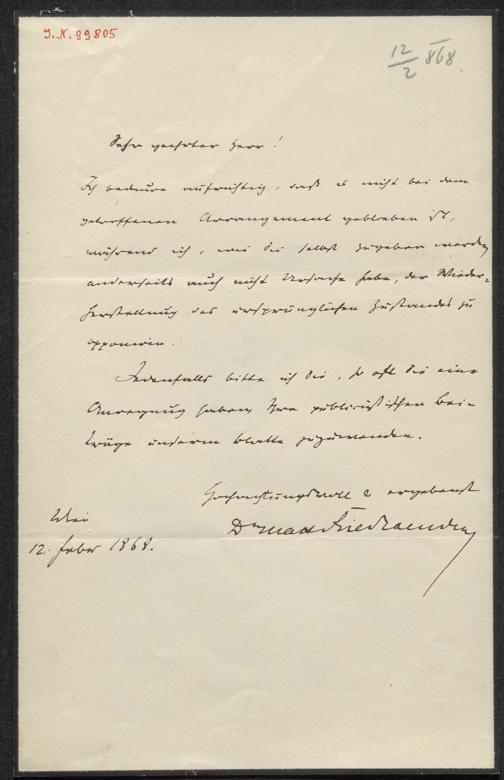 I.N. 99805
12/2 868
Sehr geehrter Herr!
Ich bedaure aufrichtig, daß es nicht bei dem
getroffenen Arrangement geblieben ist,
während ich, wie Sie selbst zugeben werden
anderseits auch nicht Ursache habe, der Wieder-
herstellung des ursprünglichen Zustandes zu
opponiren.
Jedenfalls bitte ich Sie, so oft Sie eine
Anregung haben, Ihre publicistischen Bei-
träge unserm Blatte zuzuwenden.
Hochachtungsvoll & ergebenst
Dr Max Friedlaender
Wien
12. Feber 1868.